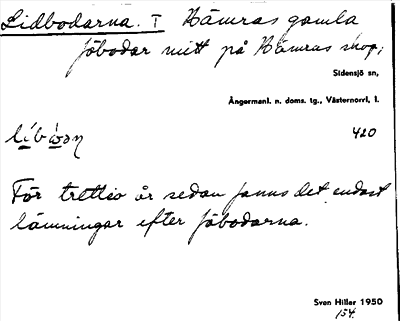 Lidbodarna. I Hämras gamla
fäbodar mitt på Hämras skog,
Sidensjö sn,
Ångermanl. n. doms. tg., Västernorrl. l.
420
För trettio år sedan fanns det endast
lämningar efter fäbodarna.
Sven Hiller 1950
154